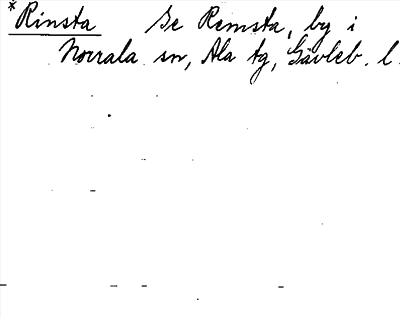 *Rinsta Se Remsta, by i
Norrala sn, Ala tg, Gävleb. l.